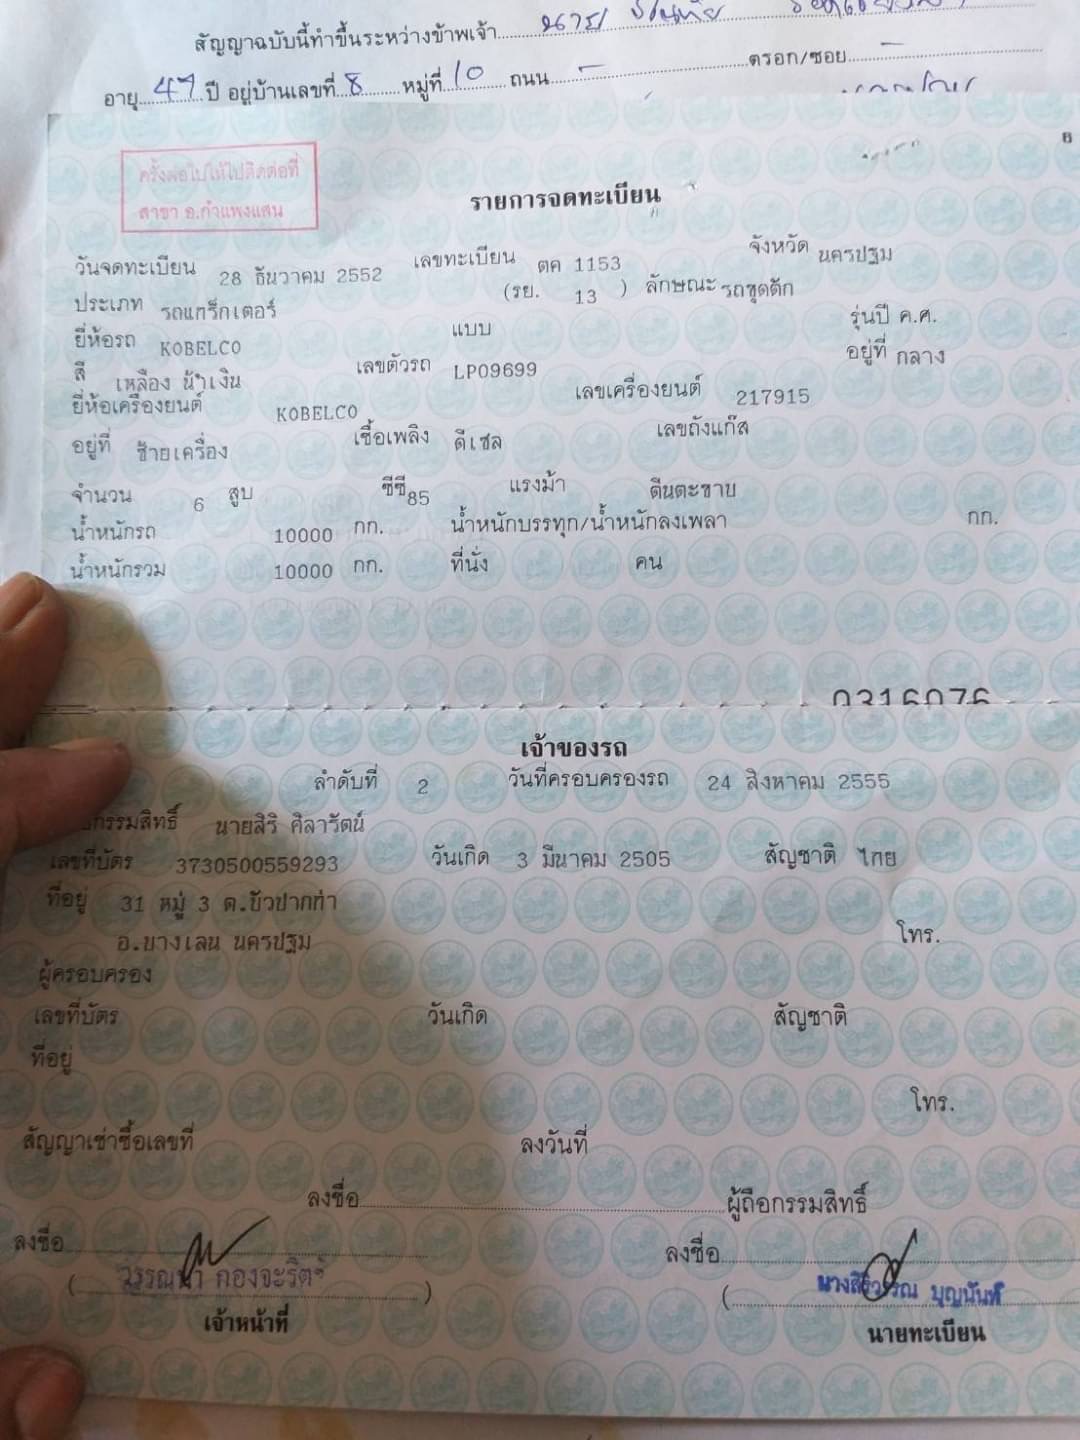 สัญญาฉบับนี้ทำขึ้นระหว่างข้าพเจ้า นาย
อายุ 47 ปี อยู่บ้านเลขที่ 8 หมู่ที่ 10 ถนน - ตรอก/ซอย -
8
ครั้งต่อไปให้ไปติดต่อที่
สาขา อ.กำแพงแสน
รายการจดทะเบียน
วันจดทะเบียน 28 ธันวาคม 2552 เลขทะเบียน ตค 1153 จังหวัด นครปฐม
ประเภท รถแทร็กเตอร์ (รย. 13 ) ลักษณะ รถขุดตัก
ยี่ห้อรถ KOBELCO แบบ รุ่นปี ค.ศ.
สี เหลือง น้ำเงิน เลขตัวรถ LP09699 อยู่ที่ กลาง
ยี่ห้อเครื่องยนต์ KOBELCO เลขเครื่องยนต์ 217915
อยู่ที่ ซ้ายเครื่อง เชื้อเพลิง ดีเซล เลขถังแก๊ส
จำนวน 6 สูบ ซีซี 85 แรงม้า ตีนตะขาบ
น้ำหนักรถ 10000 กก. น้ำหนักบรรทุก/น้ำหนักลงเพลา กก.
น้ำหนักรวม 10000 กก. ที่นั่ง คน
0316076
เจ้าของรถ
ลำดับที่ 2 วันที่ครอบครองรถ 24 สิงหาคม 2555
กรรมสิทธิ์ นายสิริ ศิลารัตน์
เลขที่บัตร 3730500559293 วันเกิด 3 มีนาคม 2505 สัญชาติ ไทย
ที่อยู่ 31 หมู่ 3 ต.บัวปากท่า
อ.บางเลน นครปฐม โทร.
ผู้ครอบครอง
เลขที่บัตร วันเกิด สัญชาติ
ที่อยู่
โทร.
สัญญาเช่าซื้อเลขที่ ลงวันที่
ลงชื่อ ผู้ถือกรรมสิทธิ์
ลงชื่อ ลงชื่อ
( วรรณนา กองจะริต ) ( นางสิริวรรณ บุญนันท์
เจ้าหน้าที่ นายทะเบียน